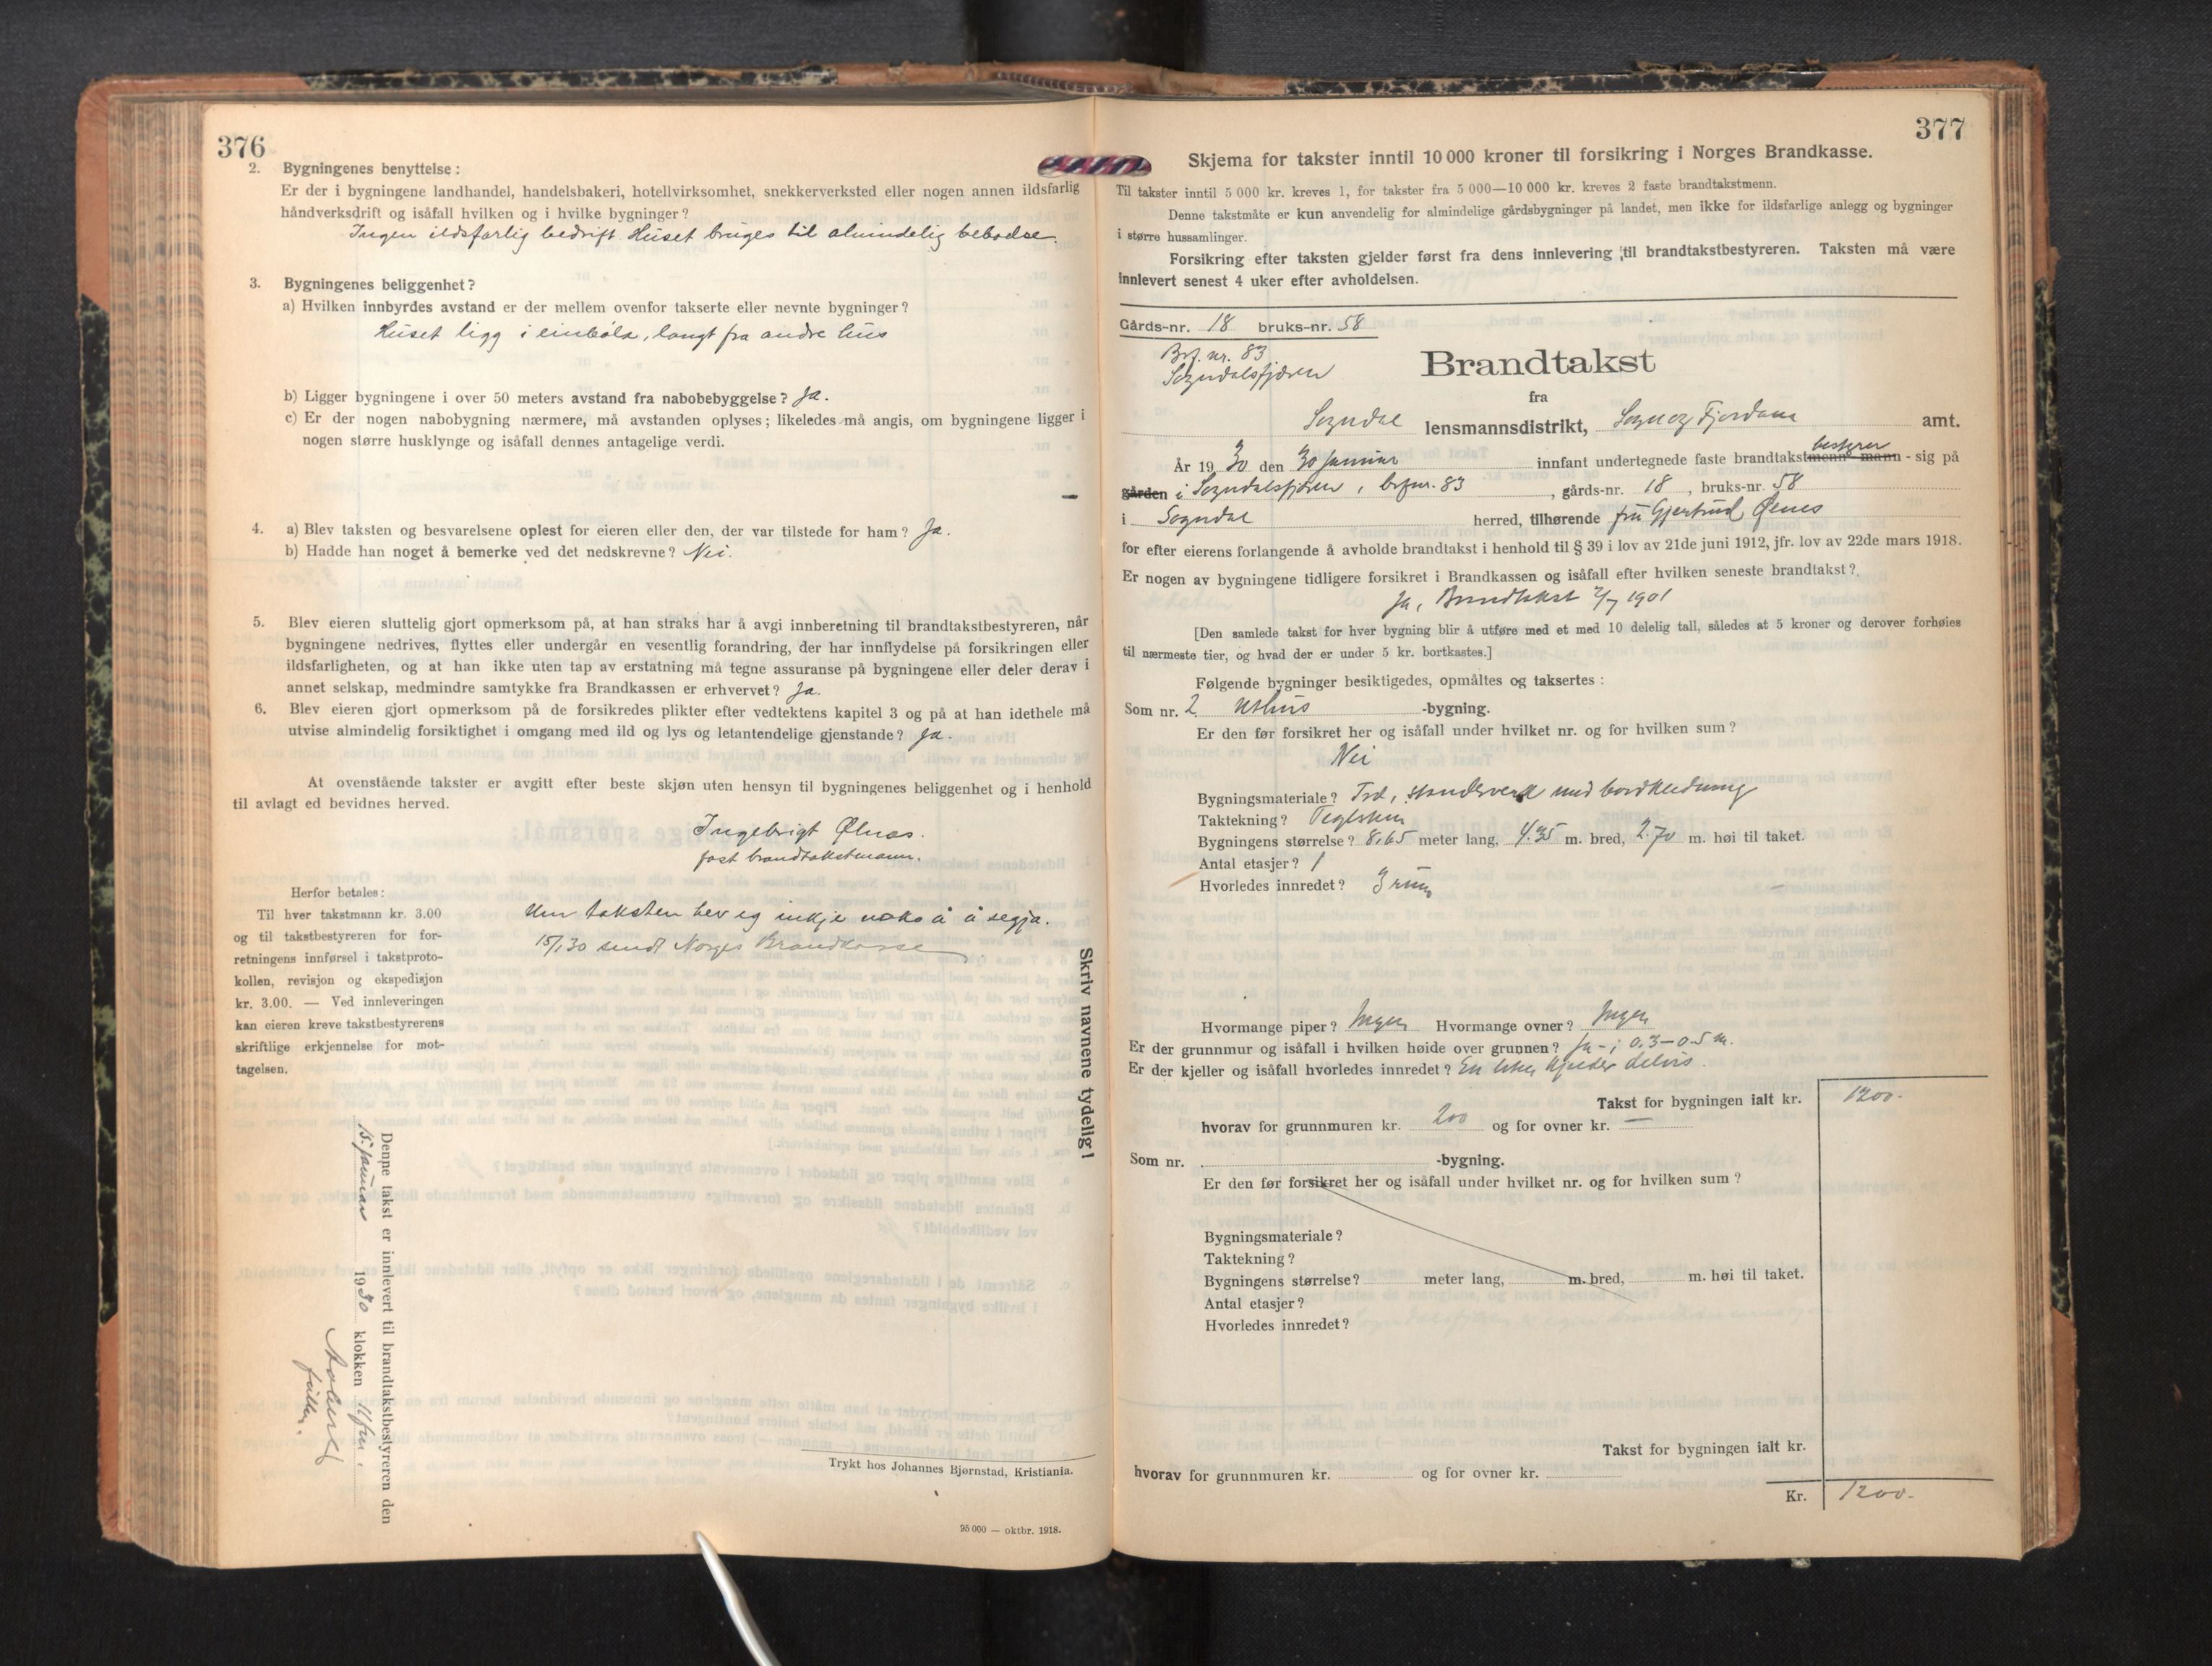 376
2. Bygningenes benyttelse :
Er der i bygningene landhandel, handelsbakeri, hotellvirksomhet, snekkerverksted eller nogen annen ildsfarlig
håndverksdrift og isåfall hvilken og i hvilke bygninger?
Ingen ildsfarlig bedrift. Huset bruges til almindelig beboelse.
3. Bygningenes beliggenhet?
a) Hvilken innbyrdes avstand er der mellem ovenfor takserte eller nevnte bygninger?
Huset ligg i einbøla, langt fra andre hus
b) Ligger bygningene i over 50 meters avstand fra nabobebyggelse? Ja.
c) Er der nogen nabobygning nærmere, må avstanden oplyses; likeledes må angis, om bygningene ligger i
nogen større husklynge og isåfall dennes antagelige verdi.
4. a) Blev taksten og besvarelsene oplest for eieren eller den, der var tilstede for ham? Ja.
b) Hadde han noget å bemerke ved det nedskrevne? Nei.
5. Blev eieren sluttelig gjort opmerksom på, at han straks har å avgi innberetning til brandtakstbestyreren, når
bygningene nedrives, flyttes eller undergår en vesentlig forandring, der har innflydelse på forsikringen eller
ildsfarligheten, og at han ikke uten tap av erstatning må tegne assuranse på bygningene eller deler derav i
annet selskap, medmindre samtykke fra Brandkassen er erhvervet? Ja.
6. Blev eieren gjort opmerksom på de forsikredes plikter efter vedtektens kapitel 3 og på at han idethele må
utvise almindelig forsiktighet i omgang med ild og lys og letantendelige gjenstande? Ja.
At ovenstående takster er avgitt efter beste skjøn uten hensyn til bygningenes beliggenhet og i henhold
til avlagt ed bevidnes herved.
Ingebrigt Ølnes.
fast brandtakstmann.
Herfor betales:
Til hver takstmann kr. 3.00
og til takstbestyreren for for-
retningens innførsel i takstproto-
kollen, revisjon og ekspedisjon
kr. 3.00. — Ved innleveringen
kan eieren kreve takstbestyrerens
skriftlige erkjennelse for mot-
tagelsen.
Um taksten hev eg inkje noko å å segja.
15/1 30 sendt Norges Brandkasse
Skriv navnene tydelig!
Denne takst er innlevert til brandtakstbestyreren den
15. januar 1930 klokken
Trykt hos Johannes Bjørnstad, Kristiania.
95 000 — oktbr. 1918.
377
Skjema for takster inntil 10 000 kroner til forsikring i Norges Brandkasse.
Til takster inntil 5 000 kr. kreves 1, for takster fra 5 000—10 000 kr. kreves 2 faste brandtakstmenn.
Denne takstmåte er kun anvendelig for almindelige gårdsbygninger på landet, men ikke for ildsfarlige anlegg og bygninger
i større hussamlinger.
Forsikring efter taksten gjelder først fra dens innlevering til brandtakstbestyreren. Taksten må være
innlevert senest 4 uker efter avholdelsen.
Gårds-nr. 18 bruks-nr. 58
Brf. nr. 83
Sogndalsfjæren
Brandtakst
fra
Sogndal lensmannsdistrikt, Sogn og Fjordane amt.
bestyrer
År 1930 den 30 januar innfant undertegnede faste brandtakstmenn - mann - sig på
gården i Sogndalsfjæren, brfnr. 83, gårds-nr. 18, bruks-nr. 58
i Sogndal herred, tilhørende fru Gjertrud Ølnes
for efter eierens forlangende å avholde brandtakst i henhold til § 39 i lov av 21de juni 1912, jfr. lov av 22de mars 1918.
Er nogen av bygningene tidligere forsikret i Brandkassen og isåfall efter hvilken seneste brandtakst?
Ja, Brandtakst 2/7 1901
[Den samlede takst for hver bygning blir å utføre med et med 10 delelig tall, således at 5 kroner og derover forhøies
til nærmeste tier, og hvad der er under 5 kr. bortkastes.]
Følgende bygninger besiktigedes, opmåltes og taksertes :
Som nr. 2 Uthus -bygning.
Er den før forsikret her og isåfall under hvilket nr. og for hvilken sum?
Nei
Bygningsmateriale? Tre, standsverk med bordkledning
Taktekning? Teglsten
Bygningens størrelse? 8,65 meter lang, 4.35 m. bred, 2.70 m. høi til taket.
Antal etasjer? 1
Hvorledes innredet? 3 rum
Hvormange piper? Ingen Hvormange ovner? Ingen
Er der grunnmur og isåfall i hvilken høide over grunnen? Ja - ; 0.3—0.5 m.
Er der kjeller og isåfall hvorledes innredet? En liten kjelder delvis.
Takst for bygningen ialt kr. 1200.-
hvorav for grunnmuren kr. 200 og for ovner kr. —
Som nr. -bygning.
Er den før forsikret her og isåfall under hvilket nr. og for hvilken sum?
Bygningsmateriale?
Taktekning?
Bygningens størrelse? meter lang, m. bred, m. høi til taket.
Antal etasjer?
Hvorledes innredet?
Takst for bygningen ialt kr.
hvorav for grunnmuren kr. og for ovner kr.
Kr. 1200.-